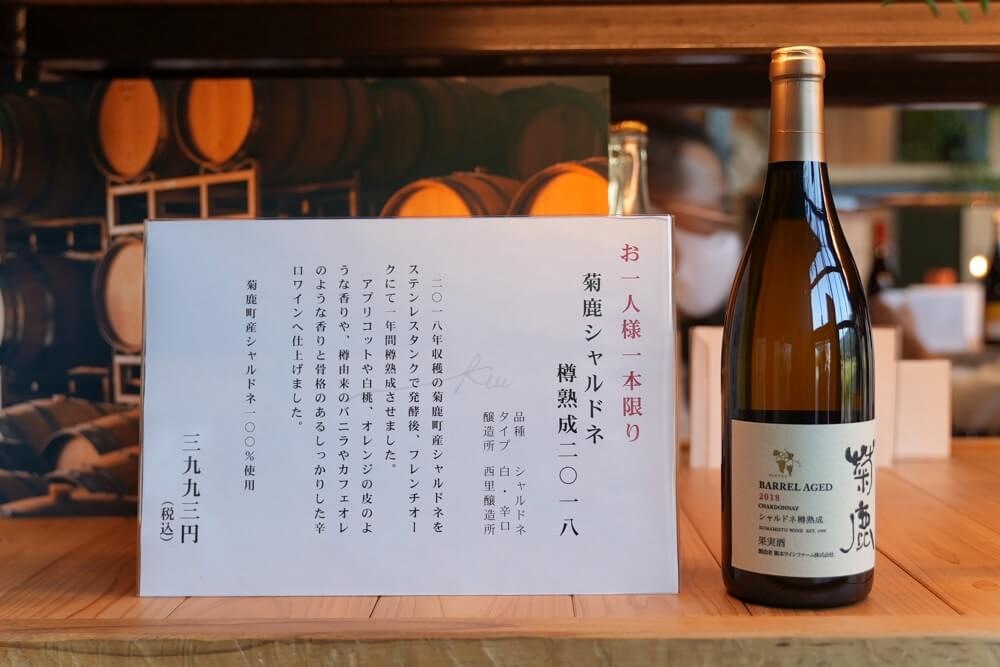 お一人様一本限り
菊鹿シャルドネ
樽熟成二〇一八
品種 シャルドネ
タイプ 白・辛口
醸造所 西里醸造所
二〇一八年収穫の菊鹿町産シャルドネを
ステンレスタンクで発酵後、フレンチオー
クにて一年間樽熟成させました。
アプリコットや白桃、オレンジの皮のよ
うな香りや、樽由来のバニラやカフェオレ
のような香りと骨格のあるしっかりした辛
口ワインへ仕上げました。
菊鹿町産シャルドネ一〇〇％使用
三九九三円
（税込）
菊鹿
BARREL AGED
2018
CHARDONNAY
シャルドネ樽熟成
KUMAMOTO WINE EST. 1999
果実酒
製造者 熊本ワインファーム株式会社